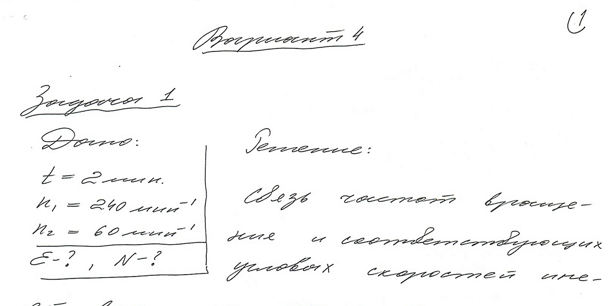 1
Вариант 4
Задача 1
Дано:
t = 2 мин.
n₁ = 240 мин⁻¹
n₂ = 60 мин⁻¹
ε-? , N-?
Решение:
Связь частот враще-
ния и соответствующих
угловых скоростей име-